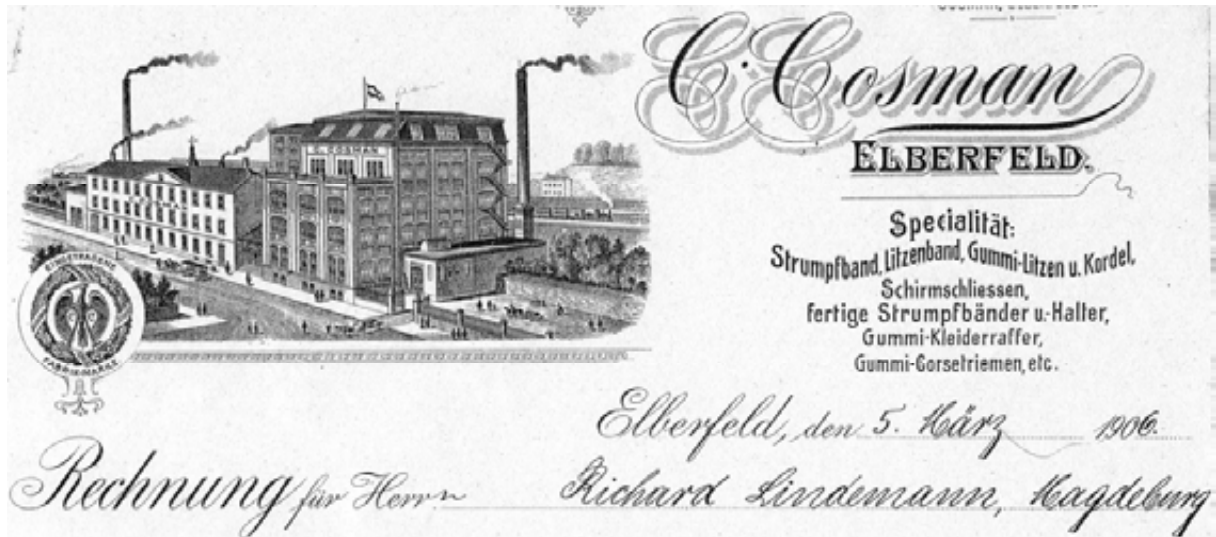 C. Cosman
ELBERFELD.
Specialität:
Strumpfband, Litzenband, Gummi-Litzen u. Kordel,
Schirmschliessen,
fertige Strumpfbänder u.-Halter,
Gummi-Kleiderraffer,
Gummi-Corsetriemen, etc.
C. COSMAN
EINGETRAGENE
FABRIK-MARKE
Elberfeld, den 5. März 1906.
Rechnung für Herrn Richard Lindemann, Magdeburg